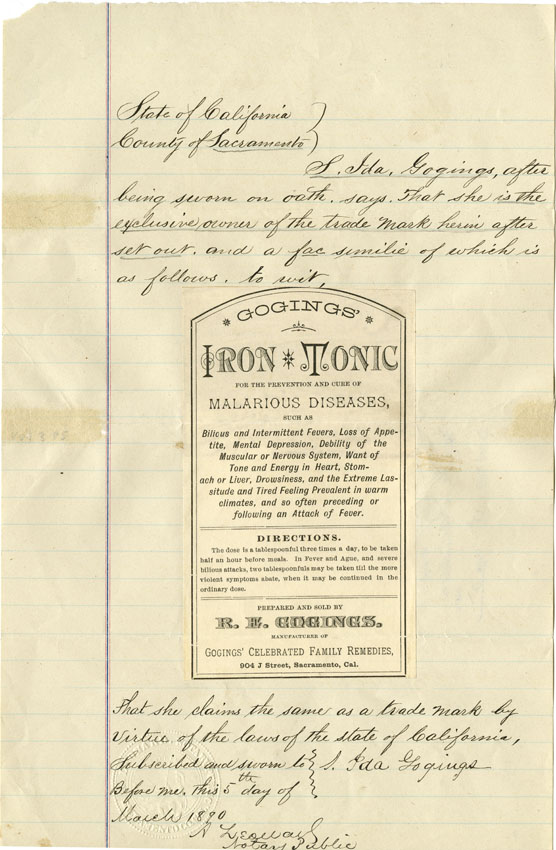 State of California )
County of Sacramento )
S. Ida. Gogings, after
being sworn on oath. says. That she is the
exclusive owner of the trade mark herin after
set out. and a fac similie of which is
as follows. to wit,
GOGINGS'
IRON * TONIC
FOR THE PREVENTION AND CURE OF
MALARIOUS DISEASES,
SUCH AS
Bilious and Intermittent Fevers, Loss of Appe-
tite, Mental Depression, Debility of the
Muscular or Nervous System, Want of
Tone and Energy in Heart, Stom-
ach or Liver, Drowsiness, and the Extreme Las-
situde and Tired Feeling Prevalent in warm
climates, and so often preceding or
following an Attack of Fever.
DIRECTIONS.
The dose is a tablespoonful three times a day, to be taken
half an hour before meals. In Fever and Ague, and severe
bilious attacks, two tablespoonfuls may be taken till the more
violent symptoms abate, when it may be continued in the
ordinary dose.
PREPARED AND SOLD BY
R. E. GOGINGS,
MANUFACTURER OF
GOGINGS' CELEBRATED FAMILY REMEDIES,
904 J Street, Sacramento, Cal.
That she claims the same as a trade mark by
virtue of the laws of the state of California,
Subscribed and sworn to } S. Ida Gogings
Before me, this 5th day of
March 1890
Notary Public